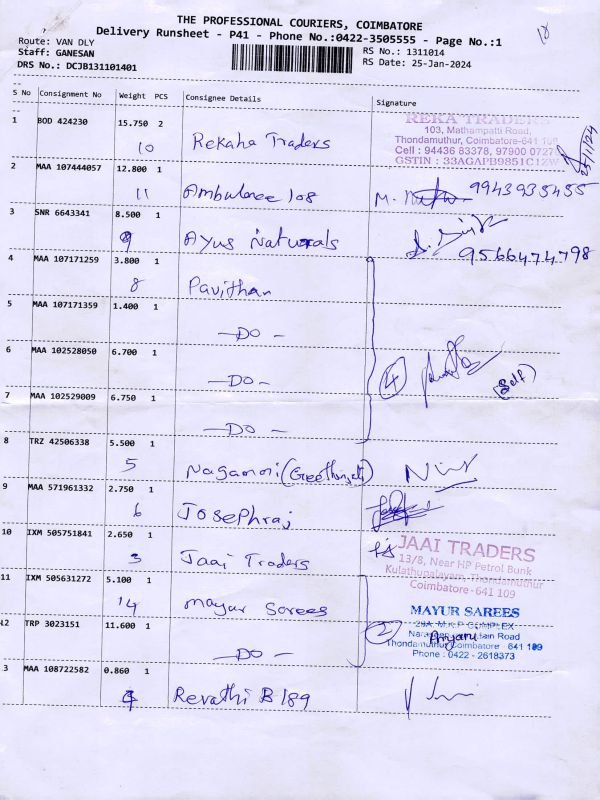 THE PROFESSIONAL COURIERS, COIMBATORE
Delivery Runsheet - P41 - Phone No.:0422-3505555 - Page No.:1
Route: VAN DLY
Staff: GANESAN
DRS No.: DCJB131101401
RS No.: 1311014
RS Date: 25-Jan-2024
18
S No Consignment No Weight PCS Consignee Details Signature
1 BOD 424230 15.750 2
10 Rekaha Traders
REKA TRADERS
103, Mathampatti Road,
Thondamuthur, Coimbatore-641 109
Cell : 94436 83378, 97900 0727
GSTIN : 33AGAPB9851C1ZW
25/1/24
2 MAA 107444057 12.800 1
11 Ambulance 108 M. 9943935455
3 SNR 6643341 8.500 1
9 Ayus Naturals
9566474798
4 MAA 107171259 3.800 1
8 Pavithan
5 MAA 107171359 1.400 1
-DO-
6 MAA 102528050 6.700 1
-DO-
4
(Self)
7 MAA 102529009 6.750 1
-DO-
8 TRZ 42506338 5.500 1
5 Nagamani
9 MAA 571961332 2.750 1
6 Josephraj
10 IXM 505751841 2.650 1
3 Jaai Traders
JAAI TRADERS
13/8, Near HP Petrol Bunk
Kulathupalayam, Thondamuthur
Coimbatore-641 109
11 IXM 505631272 5.100 1
14 mayur Sarees
MAYUR SAREES
29A, M.K.P COMPLEX
Main Road
Thondamuthur, Coimbatore - 641 109
Phone : 0422 - 2618373
2
12 TRP 3023151 11.600 1
-DO-
3 MAA 108722582 0.860 1
Revathi B 189